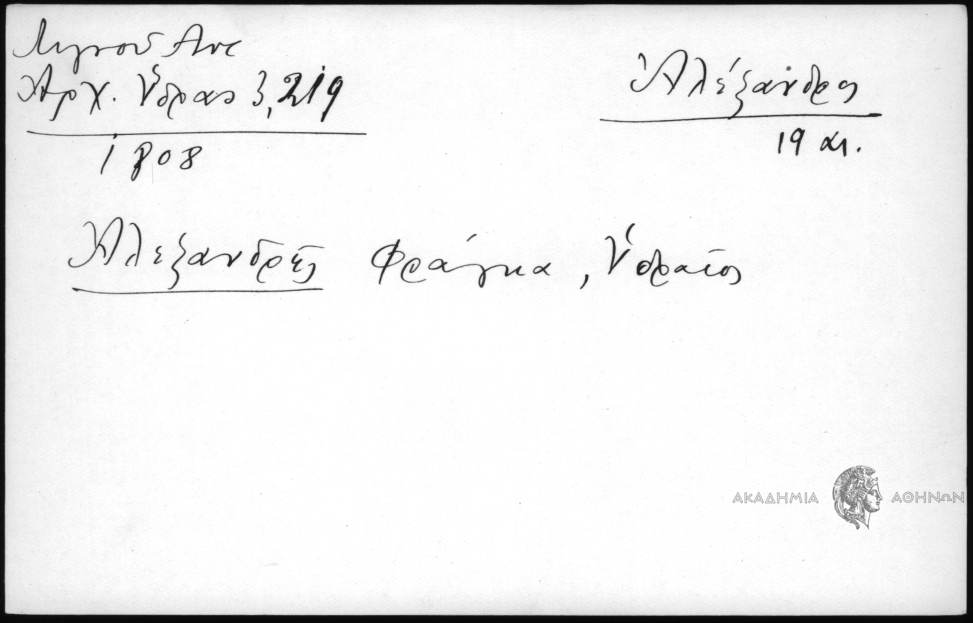 Λιγνού Αντ
Ἀρχ. Ὕδρας 3, 219
1808
Ἀλέξανδρος
19 αι.
Ἀλεξανδρῆς Φράγκα, Ὑδραῖος
ΑΚΑΔΗΜΙΑ ΑΘΗΝΩΝ